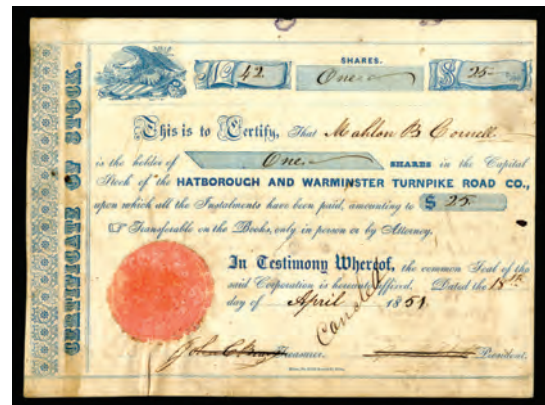 CERTIFICATE OF STOCK.
SHARES.
No 42. One $ 25-
This is to Certify, That Mahlon B Cornell
is the holder of One SHARES in the Capital
Stock of the HATBOROUGH AND WARMINSTER TURNPIKE ROAD CO.,
upon which all the Instalments have been paid, amounting to $ 25-
☞ Transferable on the Books, only in person or by Attorney.
In Testimony Whereof, the common Seal of the
said Corporation is hereunto affixed. Dated the 18th
day of April 1851.
John C Treasurer. President.